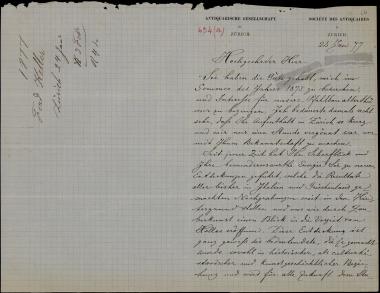 1877
Ferd. Keller
Zürich 29 Jan
ANTIQUARISCHE GESELLSCHAFT
IN
ZÜRICH.
SOCIÉTÉ DES ANTIQUAIRES
À
ZURICH.
29 Jan 77
Hochgeehrter Herr
Sie haben die Güte gehabt, mich im
Sommer des Jahres 1875 zu besuchen
und Interesse für unsere Pfahlbaualterthü-
mer zu bezeugen. Ich bedauerte damals
sehr, dass Ihr Aufenthalt in Zürich so kurz
und mir nur eine Stunde vergönnt war von
Ihre Bekanntschaft zu machen.
Seit jener Zeit hat Ihr Scharfblick und
Ihre bewundernswerthe Energie Sie zu neuen
Entdeckungen geführt, welche die Resultate
aller bisher in Italien und Griechenland ge-
machten Nachgrabungen weit in den Hin-
tergrund stellen und uns wie durch Zau-
berkunst einen Blick in die Vorzeit von
Hellas eröffnen. Diese Entdeckung ist
ganz gewiss die bedeutendste, die je gemacht
wurde, sowohl in historischer, als culturhi-
storischer und kunstgeschichtlicher Bezie-
hung und wird für alle Zukunft dem